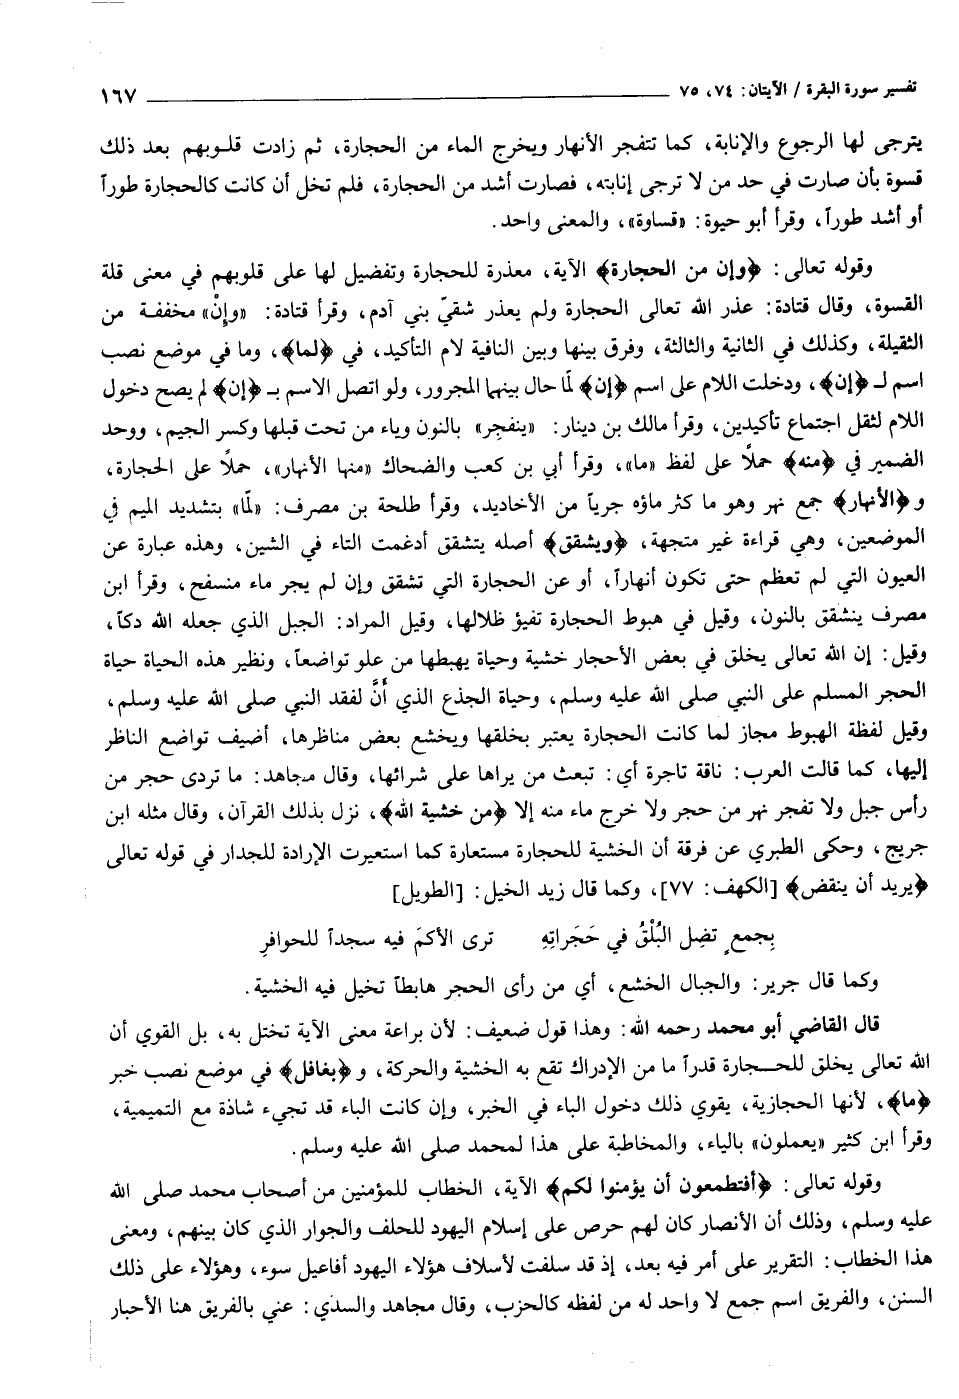 تفسير سورة البقرة / الآيتان: ٧٤، ٧٥ ١٦٧
يترجى لها الرجوع والإنابة، كما تتفجر الأنهار ويخرج الماء من الحجارة، ثم زادت قلوبهم بعد ذلك
قسوة بأن صارت في حد من لا ترجى إنابته، فصارت أشد من الحجارة، فلم تخل أن كانت كالحجارة طوراً
أو أشد طوراً، وقرأ أبو حيوة: «قساوة»، والمعنى واحد.
وقوله تعالى: ﴿وإن من الحجارة﴾ الآية، معذرة للحجارة وتفضيل لها على قلوبهم في معنى قلة
القسوة، وقال قتادة: عذر الله تعالى الحجارة ولم يعذر شقيّ بني آدم، وقرأ قتادة: «وإنْ» مخففة من
الثقيلة، وكذلك في الثانية والثالثة، وفرق بينها وبين النافية لام التأكيد، في ﴿لما﴾، وما في موضع نصب
اسم لـ ﴿إن﴾، ودخلت اللام على اسم ﴿إن﴾ لمّا حال بينهما المجرور، ولو اتصل الاسم بـ ﴿إن﴾ لم يصح دخول
اللام لثقل اجتماع تأكيدين، وقرأ مالك بن دينار: «ينفجر» بالنون وياء من تحت قبلها وكسر الجيم، ووحد
الضمير في ﴿منه﴾ حملًا على لفظ «ما»، وقرأ أبي بن كعب والضحاك «منها الأنهار»، حملًا على الحجارة،
و ﴿الأنهار﴾ جمع نهر وهو ما كثر ماؤه جرياً من الأخاديد، وقرأ طلحة بن مصرف: «لمّا» بتشديد الميم في
الموضعين، وهي قراءة غير متجهة، ﴿ويشقق﴾ أصله يتشقق أدغمت التاء في الشين، وهذه عبارة عن
العيون التي لم تعظم حتى تكون أنهاراً، أو عن الحجارة التي تشقق وإن لم يجر ماء منسفح، وقرأ ابن
مصرف ينشقق بالنون، وقيل في هبوط الحجارة تفيؤ ظلالها، وقيل المراد: الجبل الذي جعله الله دكاً،
وقيل: إن الله تعالى يخلق في بعض الأحجار خشية وحياة يهبطها من علو تواضعاً، ونظير هذه الحياة حياة
الحجر المسلم على النبي صلى الله عليه وسلم، وحياة الجذع الذي أَنَّ لفقد النبي صلى الله عليه وسلم،
وقيل لفظة الهبوط مجاز لما كانت الحجارة يعتبر بخلقها ويخشع بعض مناظرها، أضيف تواضع الناظر
إليها، كما قالت العرب: ناقة تاجرة أي: تبعث من يراها على شرائها، وقال مجاهد: ما تردى حجر من
رأس جبل ولا تفجر نهر من حجر ولا خرج ماء منه إلا ﴿من خشية الله﴾، نزل بذلك القرآن، وقال مثله ابن
جريج، وحكى الطبري عن فرقة أن الخشية للحجارة مستعارة كما استعيرت الإرادة للجدار في قوله تعالى
﴿يريد أن ينقض﴾ [الكهف: ٧٧]، وكما قال زيد الخيل: [الطويل]
بِجمعٍ تضِل البُلْقُ في حَجَراتِهِ ترى الأكمَ فيه سجداً للحوافرِ
وكما قال جرير: والجبال الخشع، أي من رأى الحجر هابطاً تخيل فيه الخشية.
قال القاضي أبو محمد رحمه الله: وهذا قول ضعيف: لأن براعة معنى الآية تختل به، بل القوي أن
الله تعالى يخلق للحجارة قدراً ما من الإدراك تقع به الخشية والحركة، و ﴿بغافل﴾ في موضع نصب خبر
﴿ما﴾، لأنها الحجازية، يقوي ذلك دخول الباء في الخبر، وإن كانت الباء قد تجيء شاذة مع التميمية،
وقرأ ابن كثير «يعملون» بالياء، والمخاطبة على هذا لمحمد صلى الله عليه وسلم.
وقوله تعالى: ﴿أفتطمعون أن يؤمنوا لكم﴾ الآية، الخطاب للمؤمنين من أصحاب محمد صلى الله
عليه وسلم، وذلك أن الأنصار كان لهم حرص على إسلام اليهود للحلف والجوار الذي كان بينهم، ومعنى
هذا الخطاب: التقرير على أمر فيه بعد، إذ قد سلفت لأسلاف هؤلاء اليهود أفاعيل سوء، وهؤلاء على ذلك
السنن، والفريق اسم جمع لا واحد له من لفظه كالحزب، وقال مجاهد والسدّي: عني بالفريق هنا الأحبار